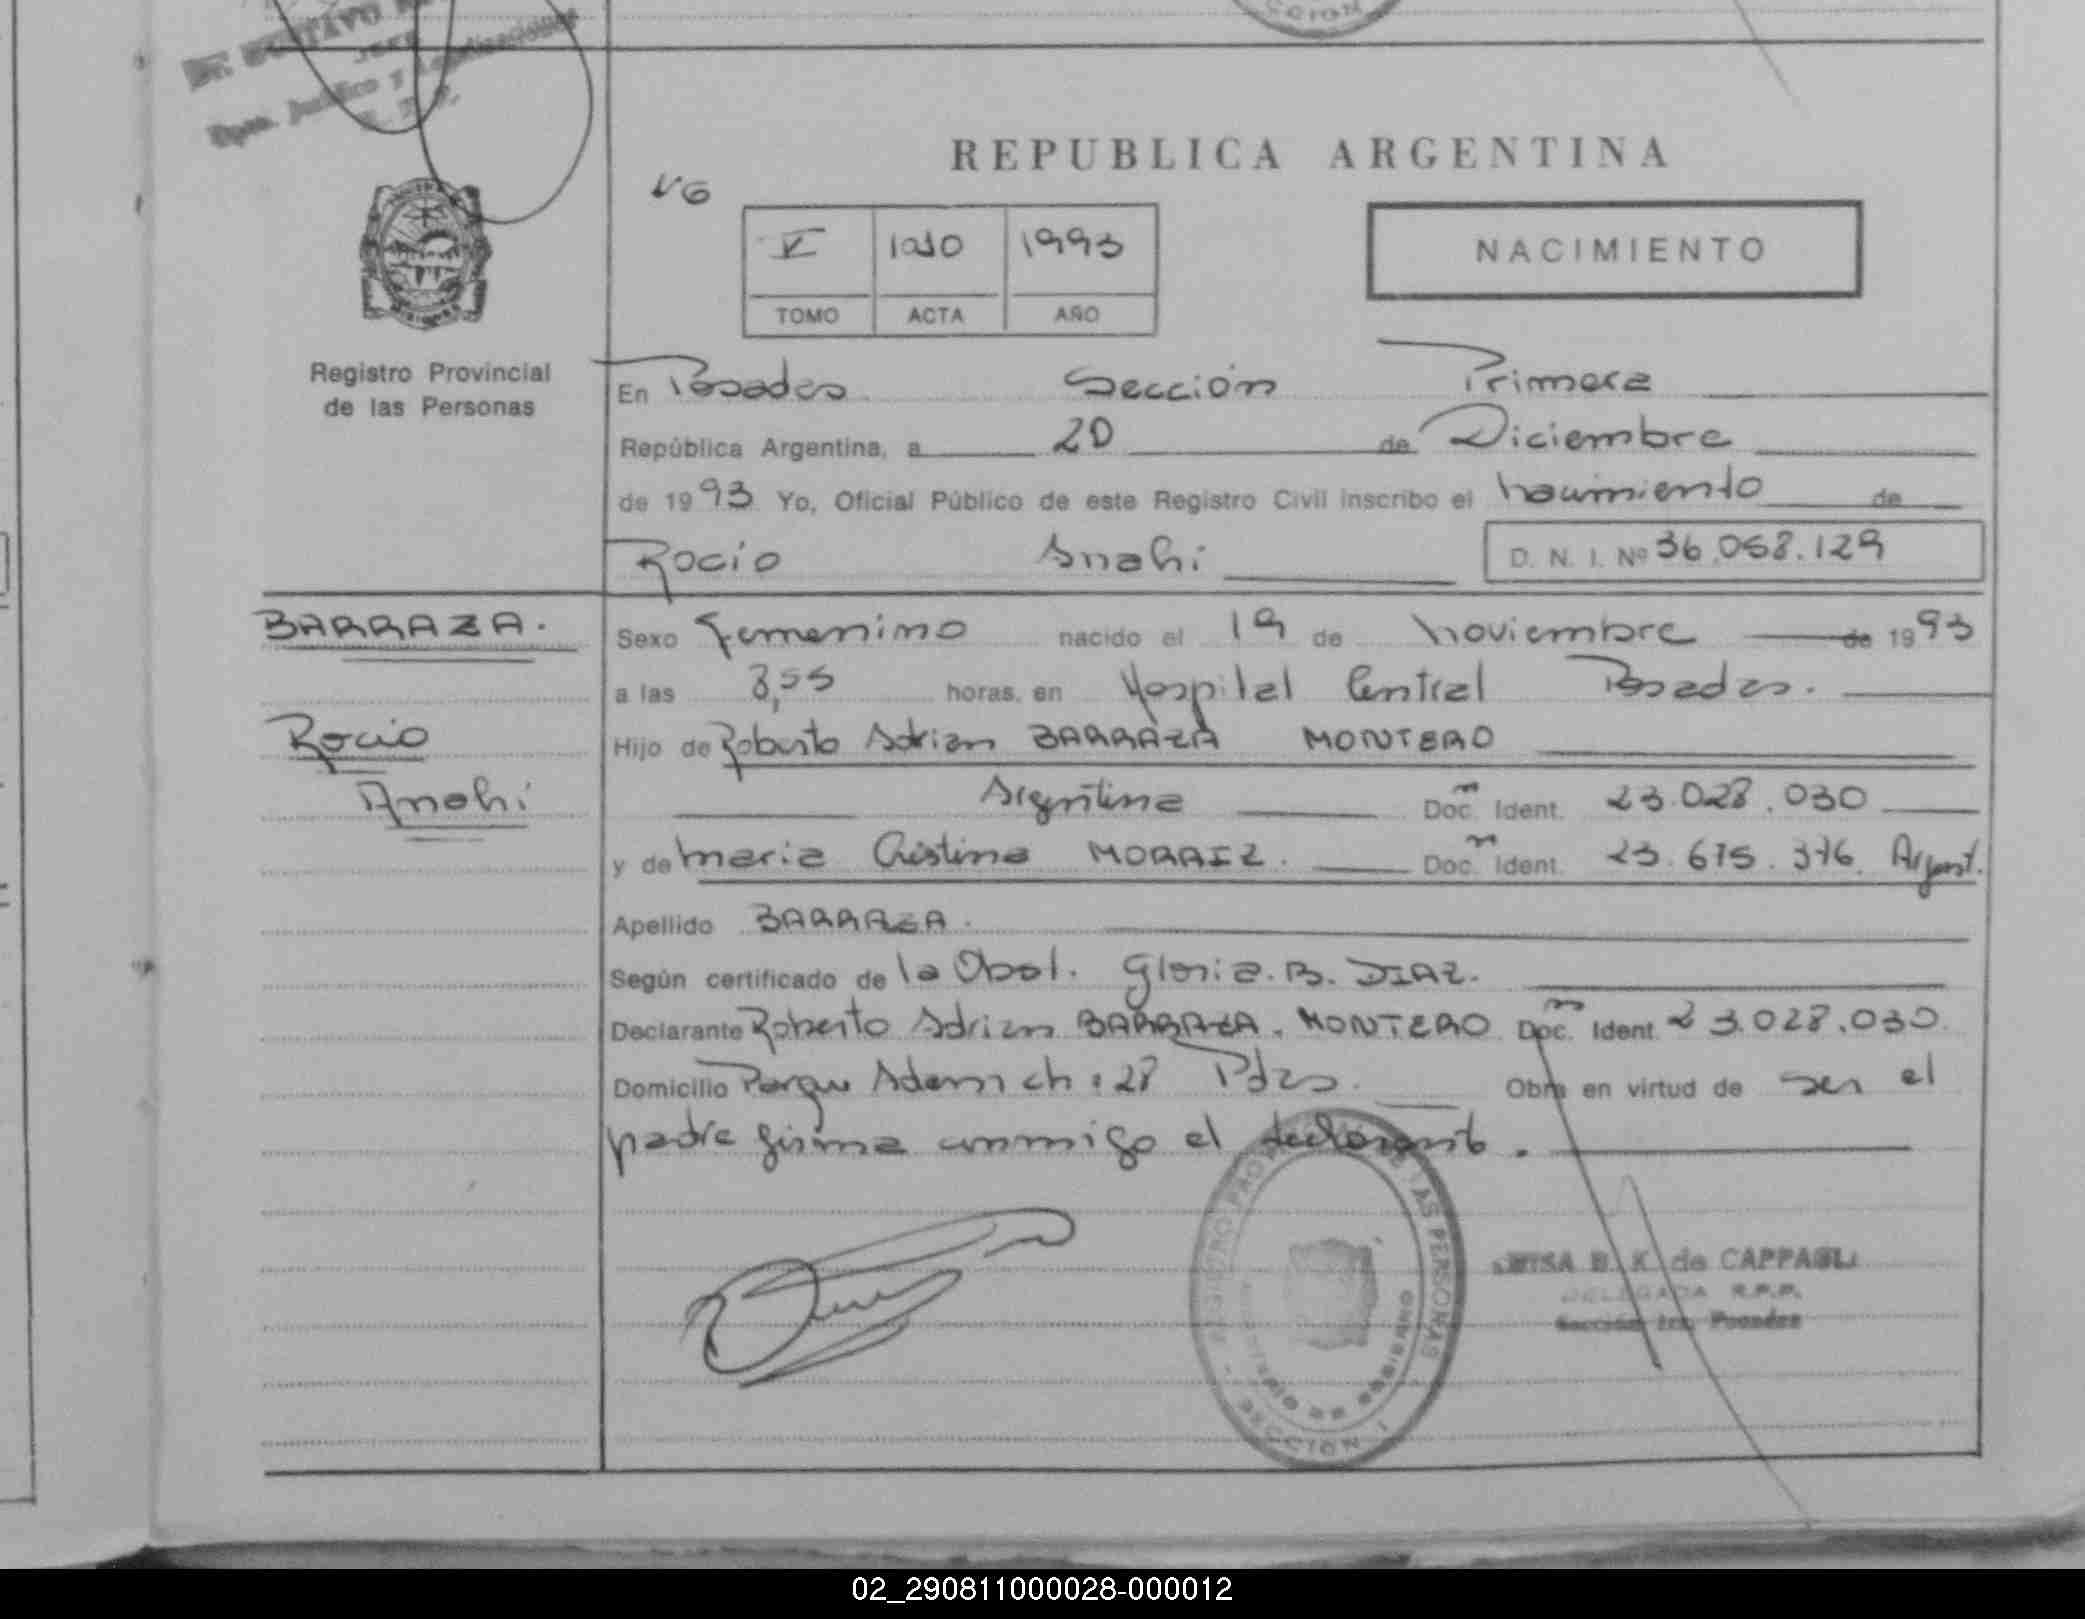 DR. GUSTAVO
JEFE
Dpto. Jurídico y Legalizaciones
CCION
REPUBLICA ARGENTINA
V 1010 1993
TOMO ACTA AÑO
NACIMIENTO
Registro Provincial
de las Personas
En Posadas Sección Primera
República Argentina, a 20 de Diciembre
de 1993 Yo, Oficial Público de este Registro Civil inscribo el nacimiento de
Rocio Anahi D. N. I. Nº 36.058.129
BARRAZA.
Rocio
Anahi
Sexo femenino nacido el 19 de noviembre de 1993
a las 8,55 horas, en Hospital Central Posadas.
Hijo de Roberto Adrian BARRAZA MONTERO
Argentina Doc. Ident. 23.028.030
y de Maria Cristina MORAIZ. Doc. Ident. 23.675.376 Argent.
Apellido BARRAZA.
Según certificado de la Obst. Gloria. B. DIAZ.
Declarante Roberto Adrian BARRAZA. MONTERO Doc. Ident. 23.028.030.
Domicilio Parque Adam ch: 28 Pdas. Obra en virtud de ser el
padre firma conmigo el declarante.
REGISTRO PROVINCIAL DE LAS PERSONAS
MINISTERIO DE GOBIERNO
SECCION 1
B. K. de CAPPAGLI
DELEGADA R.P.P.
Sección 1ra. Posadas
02_290811000028-000012